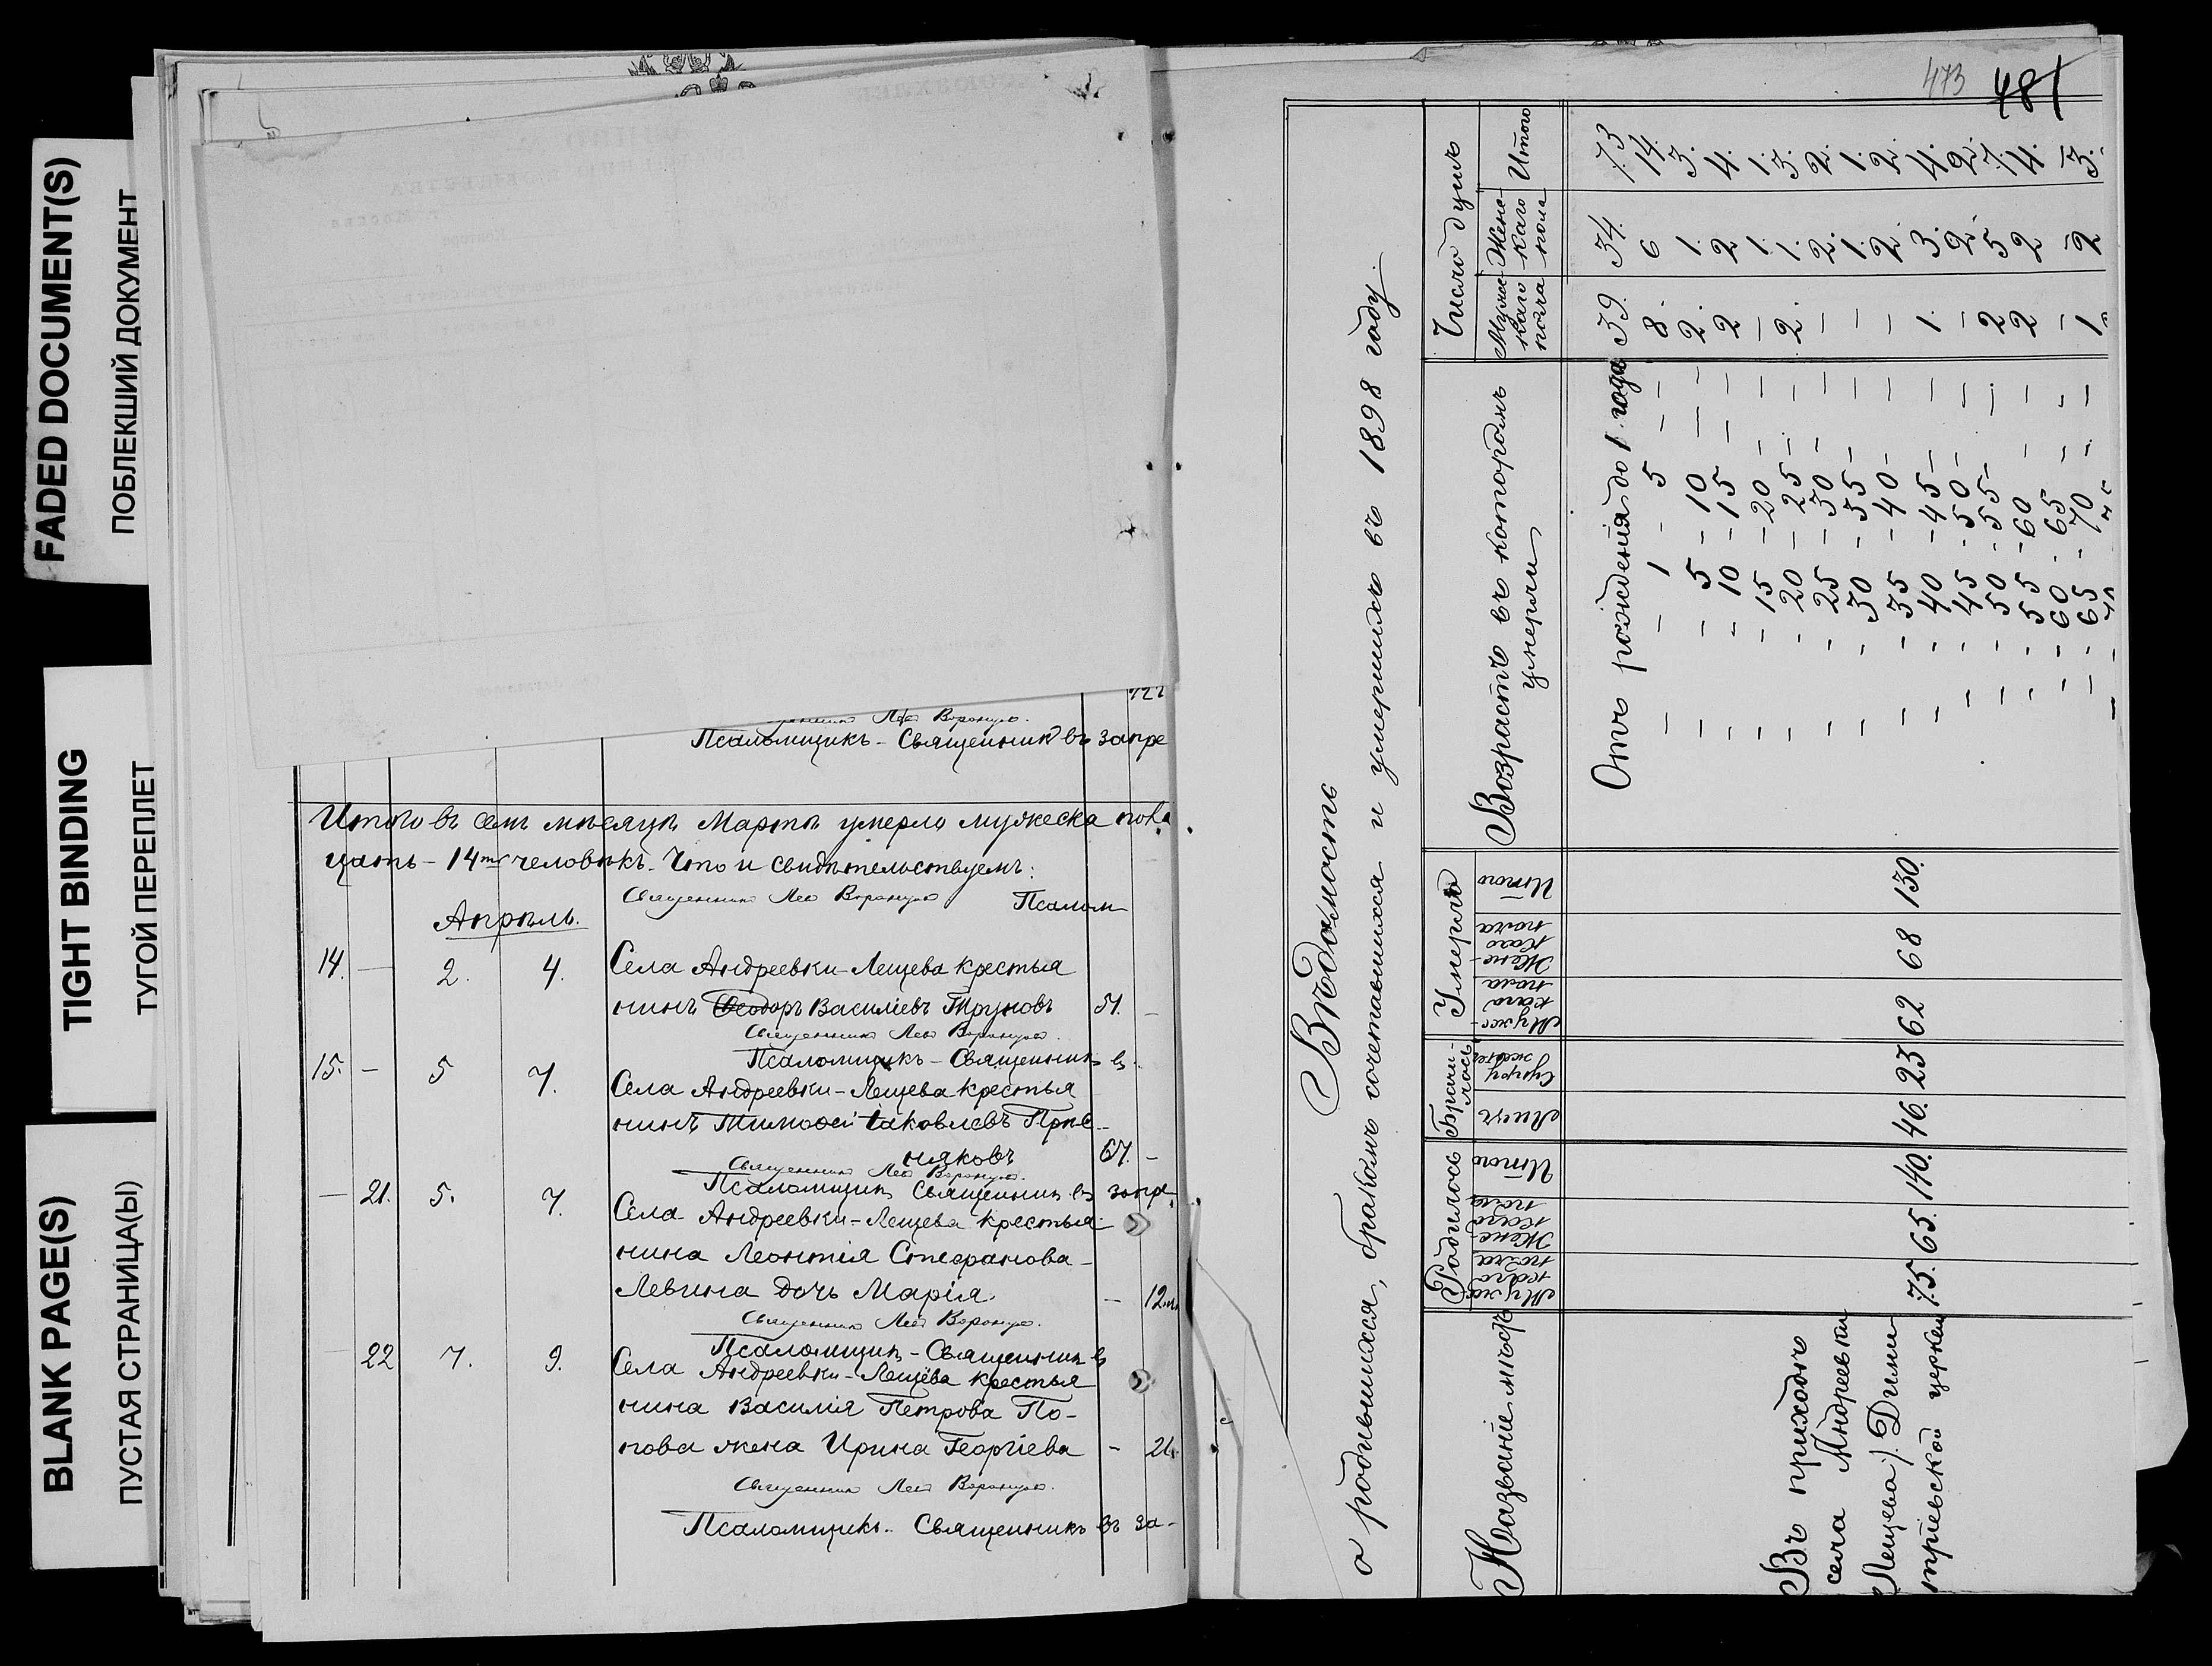 FADED DOCUMENT(S)
ПОБЛЕКШИЙ ДОКУМЕНТ
TIGHT BINDING
ТУГОЙ ПЕРЕПЛЕТ
BLANK PAGE(S)
ПУСТАЯ СТРАНИЦА(Ы)
Псаломщикъ - Священникъ въ запре
Итого въ семъ мѣсяцѣ Мартѣ умерло мужеска пола
цать - 14ть человѣкъ. Что и свидѣтельствуемъ:
Священникъ Псалом
Апрѣль.
14. — 2. 4. Села Андреевки-Лещева крестья
нинъ Ѳеодоръ Василіевъ Труновъ 51. –
Священникъ
Псаломщикъ - Священникъ въ
15. – 5 7. Села Андреевки-Лещева крестья
нинъ Тимоѳей Іаковлевъ Прѣс-
няковъ 67. –
Священникъ
Псаломщикъ Священникъ въ запре
— 21. 5. 7. Села Андреевки-Лещева крестья-
нина Леонтія Стефанова
Левина дочь Марія. – 12
Священникъ
Псаломщикъ - Священникъ въ
22 7. 9. Села Андреевки-Лещева крестья
нина Василія Петрова По-
пова жена Ирина Георгіева – 21
Священникъ
Псаломщикъ. Священникъ въ за-
473 481
Вѣдомость
о родившихся, бракомъ сочетавшихся и умершихъ въ 1898 году.
Названіе мѣстъ Родилось Бракосо- Умерло Возрастъ въ которомъ умерли Число душъ
Мужескаго пола Женскаго пола Итого Лицъ Супружествъ Мужескаго пола Женскаго пола Итого Мужескаго пола Женскаго пола Итого
Отъ рожденія до 1 года 39. 34. 73
— — 1 - 5 — — 8. 6 14.
– – 5 - 10 — — 2. 1. 3.
– – 10 - 15 — — 2 2 4.
– – 15 - 20 — — — 1. 1.
– – 20 - 25 — — 2. 1. 3.
– – 25 - 30 — — — 2. 2.
– – 30 - 35 — — — 1. 1.
– – 35 - 40 — — — 2. 2.
– – 40 - 45 — — 1. 3. 4.
– – 45 - 50 — — — 2. 2.
– – 50 - 55 — — 2 5 7.
– – 55 - 60 — — 2 2 4.
– – 60 - 65 — — — — —
– – 65 - 70 — — 1. 2 3.
Въ приходѣ
села Андреевки
(Лещева). Дими-
тріевской церкви 75. 65. 140. 46. 23 62 68 130.